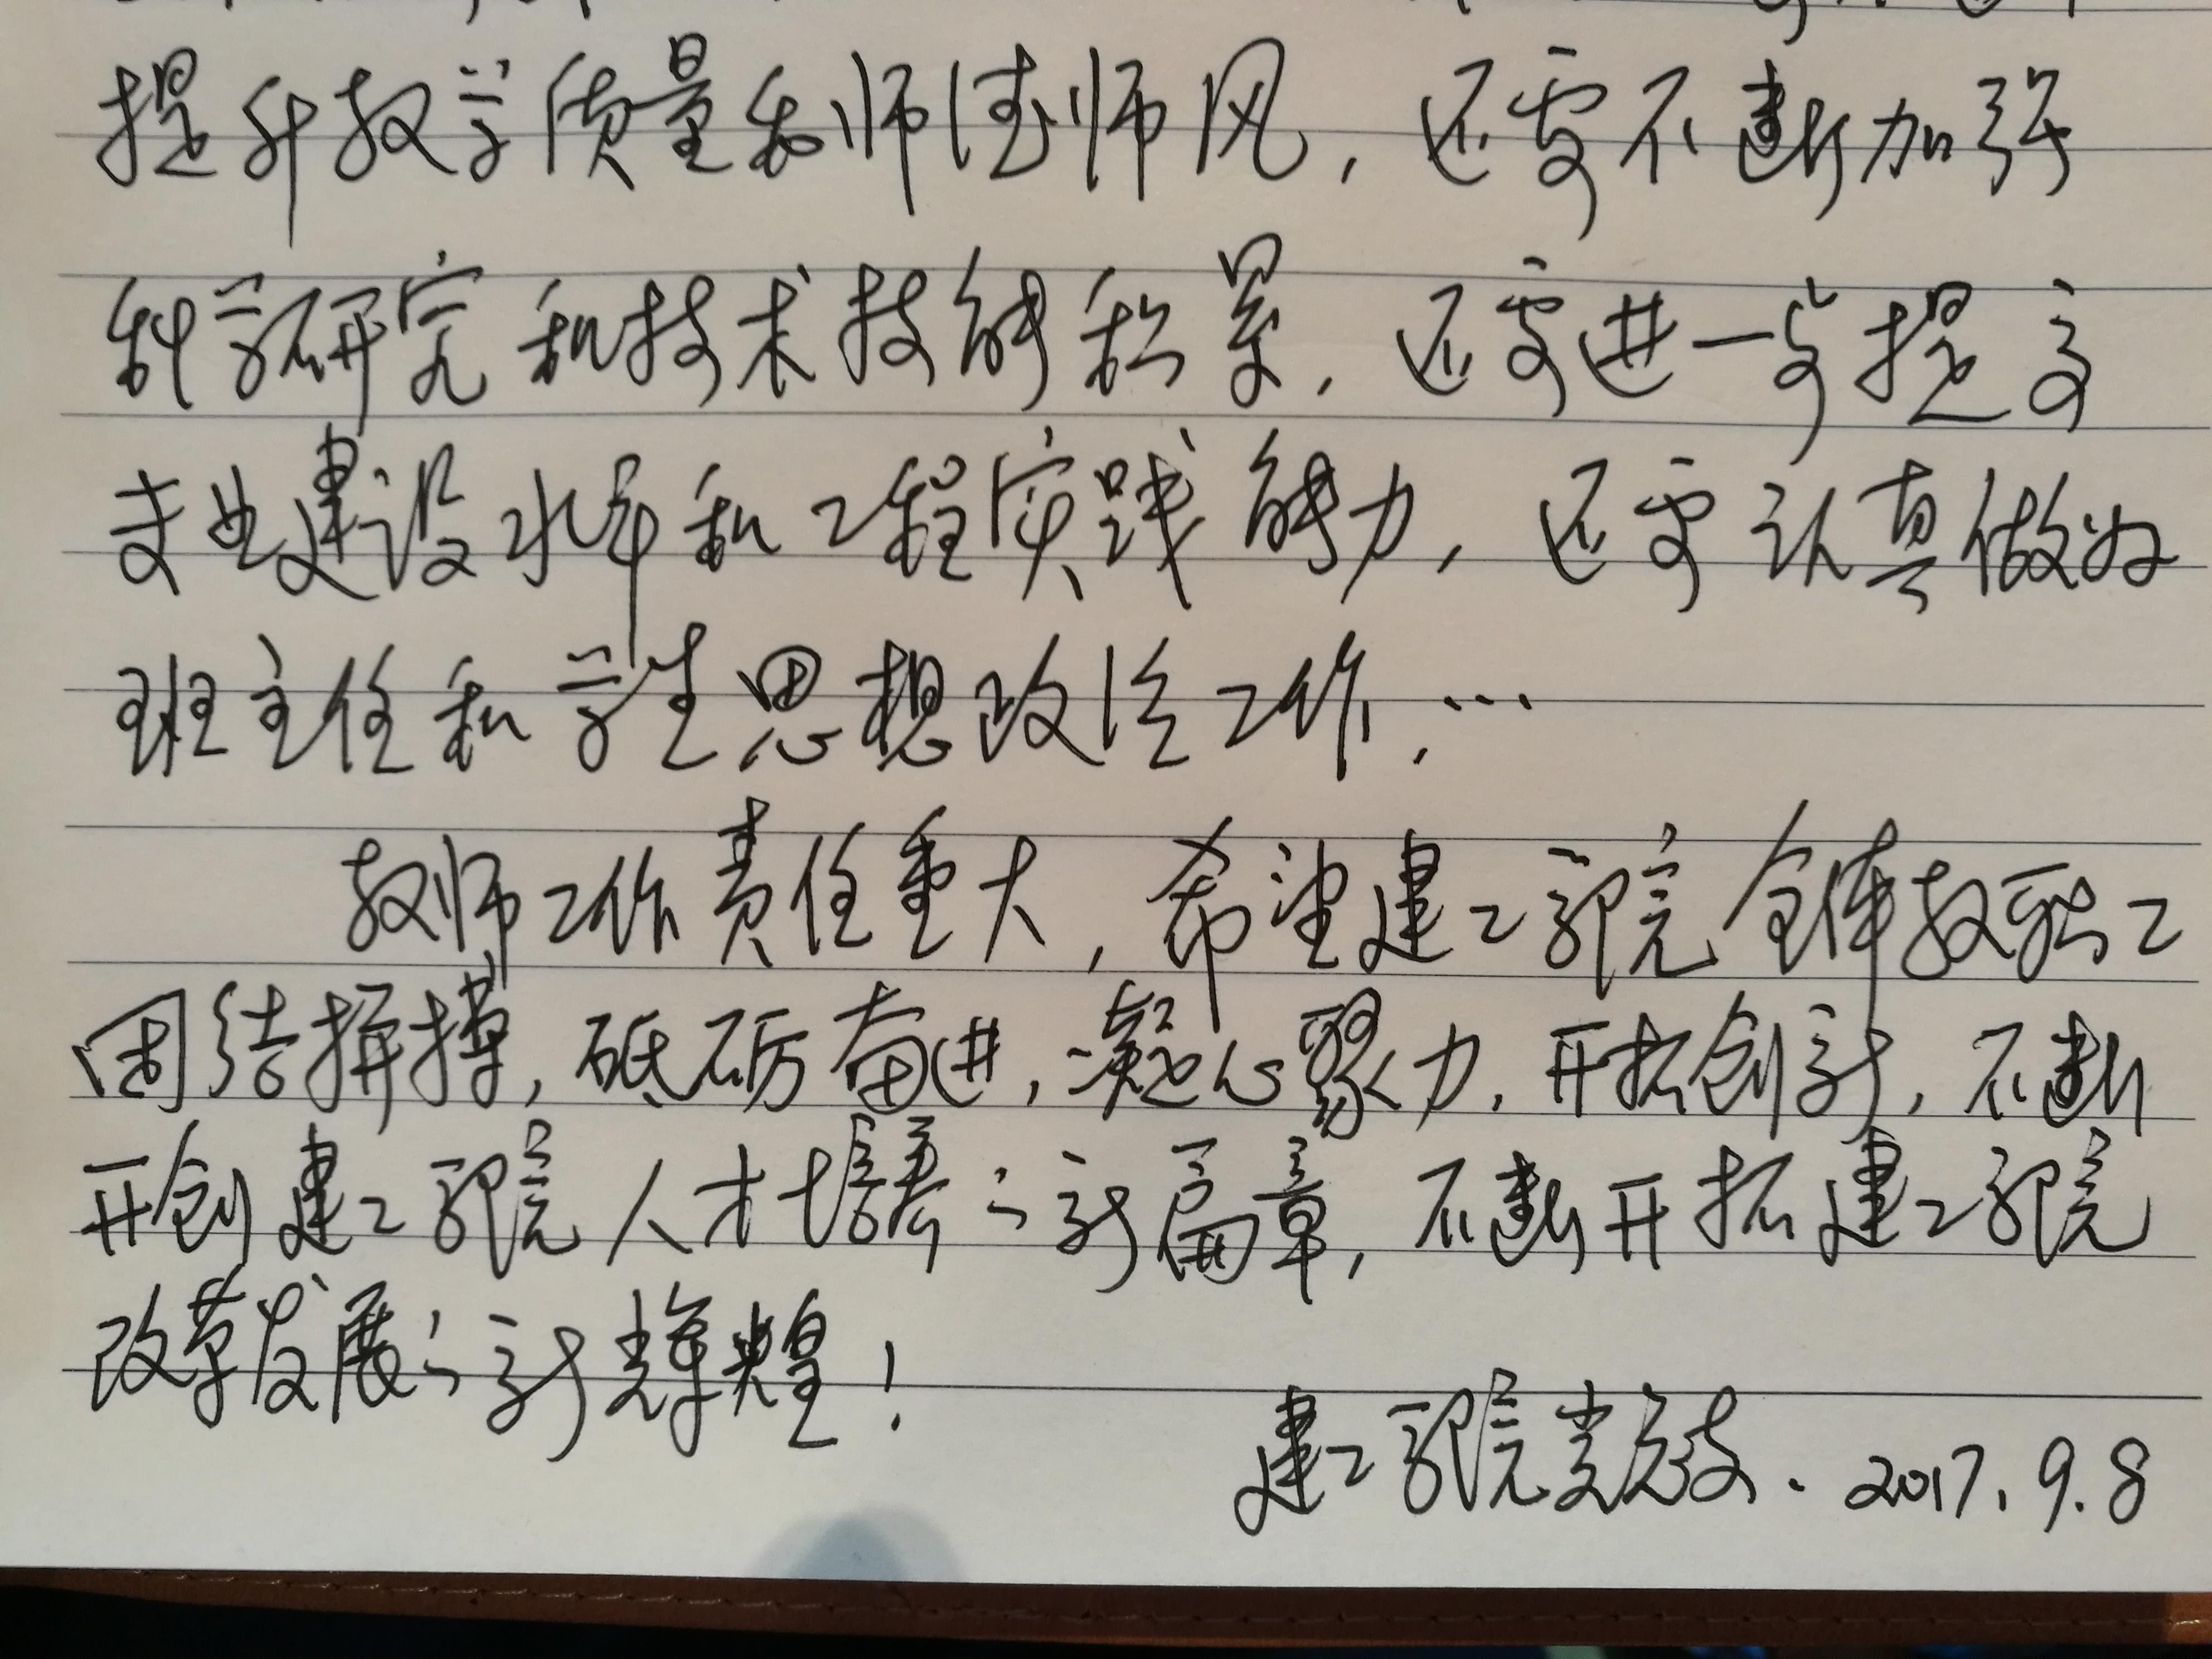 提升教学质量和师德师风，还需不断加强
科学研究和技术技能积累，还需进一步提高
专业建设水平和工程实践能力，还需认真做好
班主任和学生思想政治工作，…
教师工作责任重大，希望建工部院全体教职工
团结拼搏，砥砺奋进，凝心聚力，开拓创新，不断
开创建工部院人才培养之新篇章，不断开拓建工部院
改革发展之新辉煌！
建工部院党总支、2017.9.8